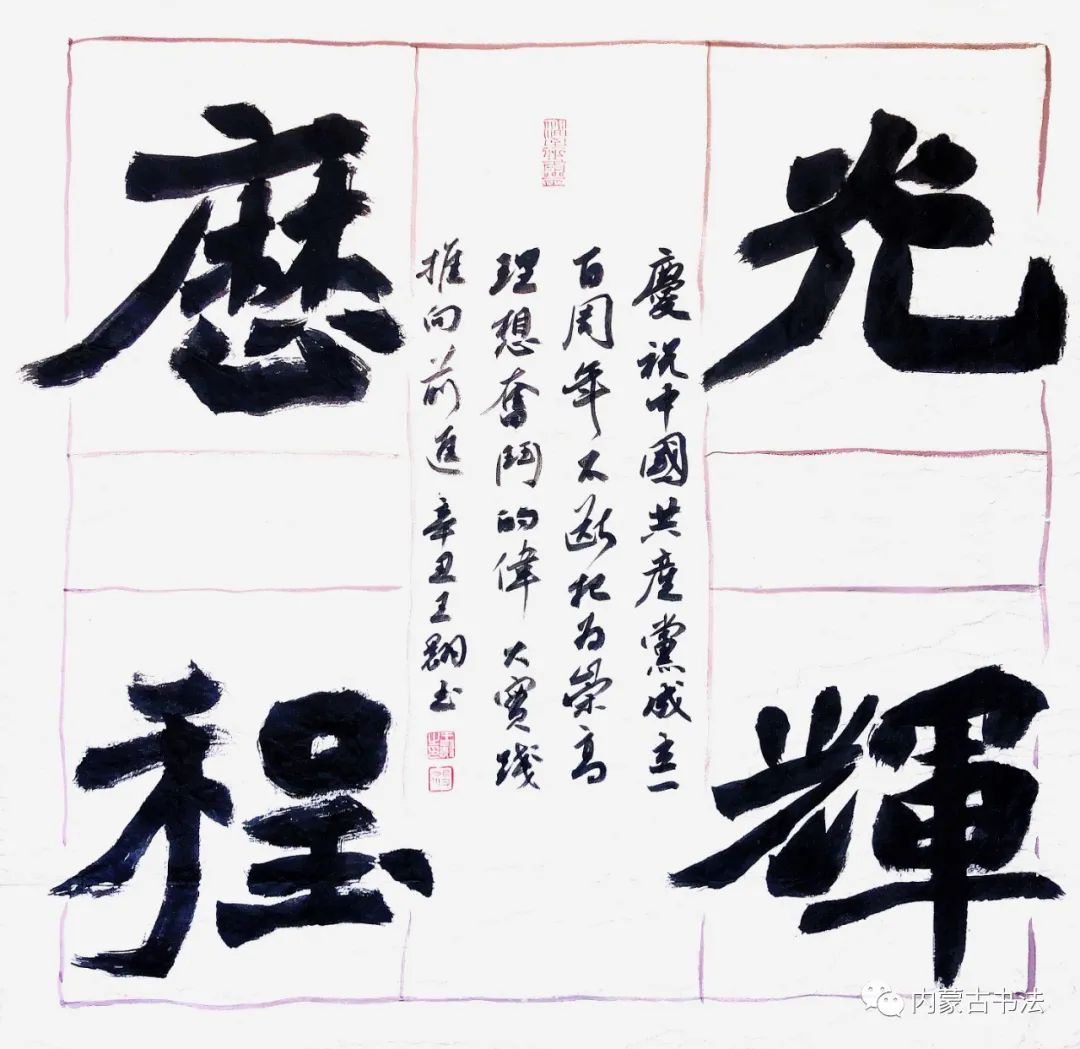 光輝
歷程
慶祝中國共產黨成立一
百周年不斷把为崇高
理想奮鬥的偉大實踐
推向前進 辛丑王书
内蒙古书法